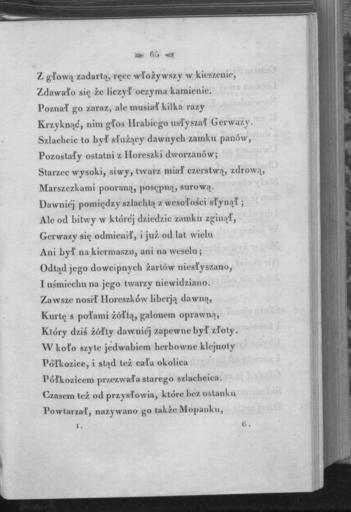 65
Z głową zadartą, ręce włożywszy w kieszenie,
Zdawało się że liczył oczyma kamienie.
Poznał go zaraz, ale musiał kilka razy
Krzyknąć, nim głos Hrabiego usłyszał Gerwazy.
Szlachcic to był służący dawnych zamku panów,
Pozostały ostatni z Horeszki dworzanów;
Starzec wysoki, siwy, twarz miał czerstwą, zdrową,
Marszczkami pooraną, posępną, surową.
Dawniéj pomiędzy szlachtą z wesołości słynął;
Ale od bitwy w któréj dziedzic zamku zginął,
Gerwazy się odmienił, i już od lat wielu
Ani był na kiermaszu, ani na weselu;
Odtąd jego dowcipnych żartów niesłyszano,
I uśmiechu na jego twarzy niewidziano.
Zawsze nosił Horeszków liberją dawną,
Kurtę s połami żółtą, galonem oprawną,
Który dziś żółty dawniéj zapewne był złoty.
W koło szyte jedwabiem herbowne klejnoty
Półkozice, i stąd też cała okolica
Półkozicem przezwała starego szlachcica.
Czasem też od przysłowia, które bez ustanku
Powtarzał, nazywano go także Mopanku,
I. 6.